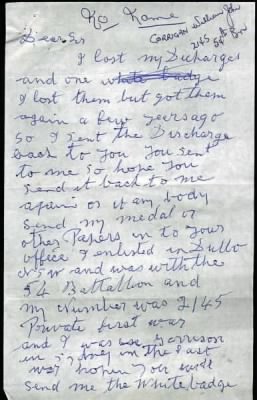 Kо Kame
CORRIGAN William John
2145 54th Bn
Dear Sir
I lost my Discharges
and one white badge
I lost them but got them
again a few years ago
so I sent the Discharge
back to you You sent
to me so hope you
send it back to me
again or if any body
send my medal or
other Papers in to your
office I enlisted in Dubbo
NSW and was with the
54 Battalion and
my Number was 2145
Private first war
and I was Garrison
in Sydney in the last
war hopen you will
send me the White badge